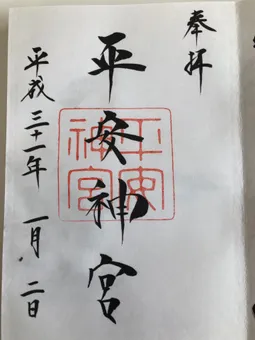 奉拝
平安神宮
平安神宮
平成三十一年 一月 二日